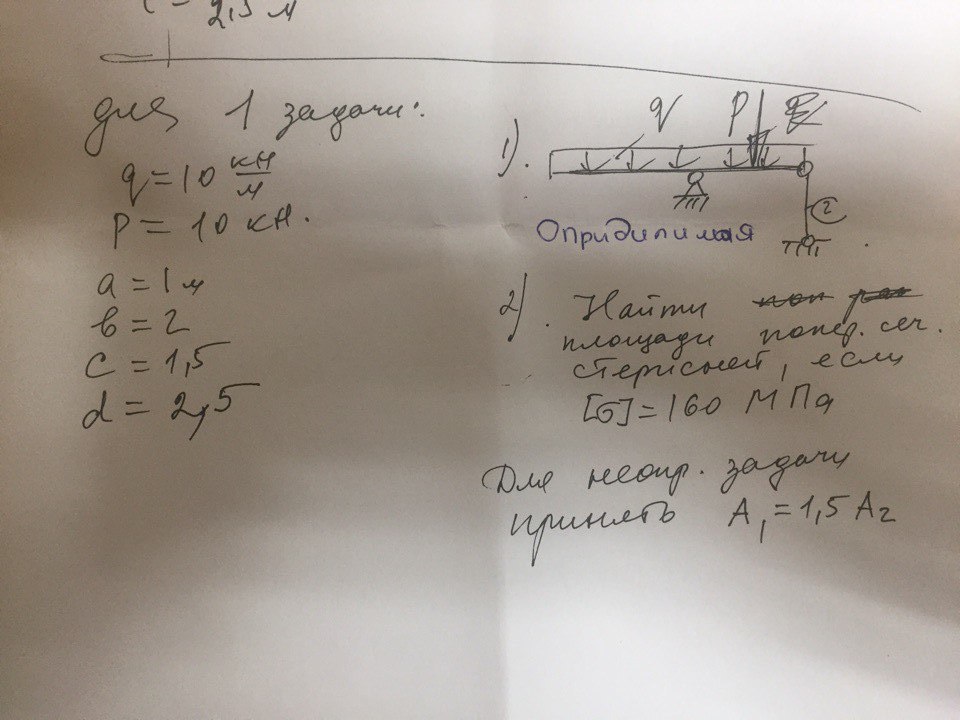 2,5 м
для 1 задачи:
q = 10 кН/м
P = 10 кН.
a = 1 м
b = 2
c = 1,5
d = 2,5
1).
q P
2
Опридилимая
2). Найти
площади попер. сеч.
стержней, если
[σ] = 160 МПа
Для неопр. задачи
принять A₁ = 1,5 A₂